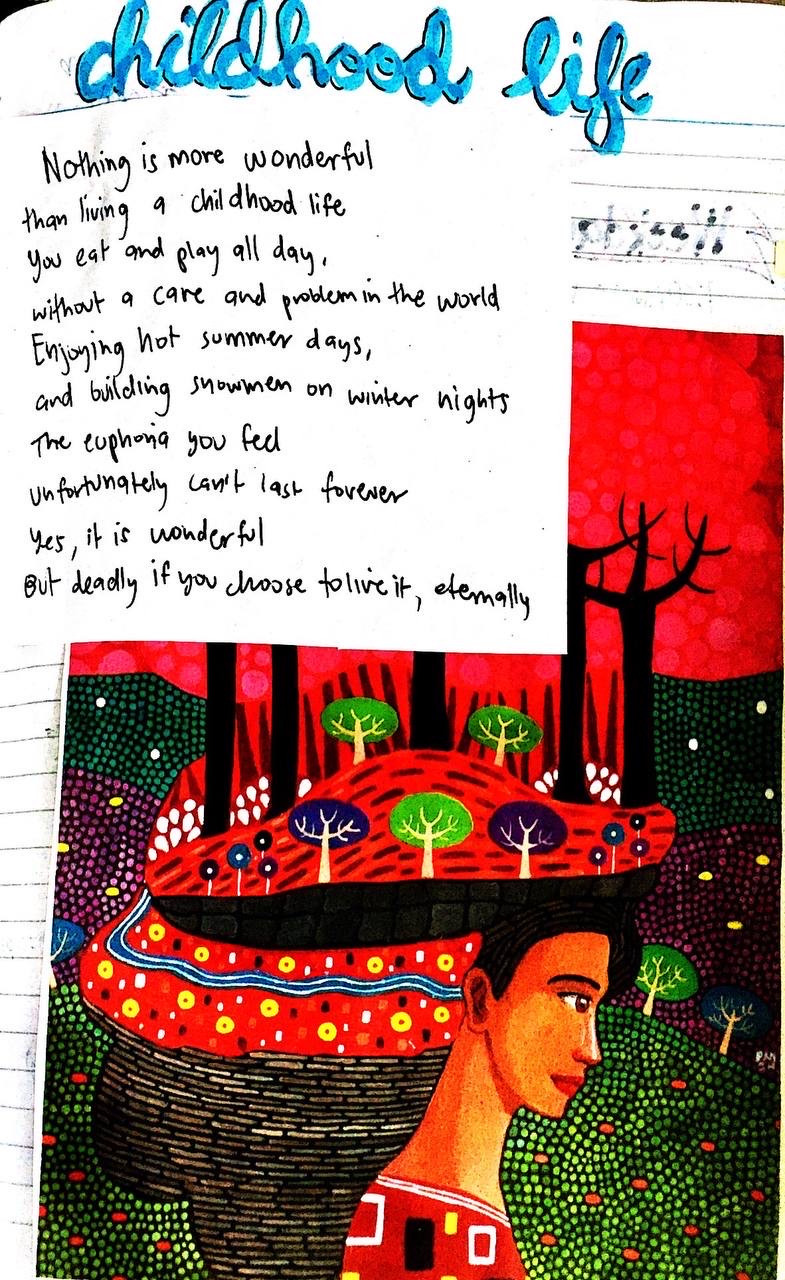 childhood life
Nothing is more wonderful
than living a childhood life
You eat and play all day,
without a care and problem in the world
Enjoying hot summer days,
and building snowmen on winter nights
The euphoria you feel
unfortunately can't last forever
Yes, it is wonderful
But deadly if you choose to live it, eternally